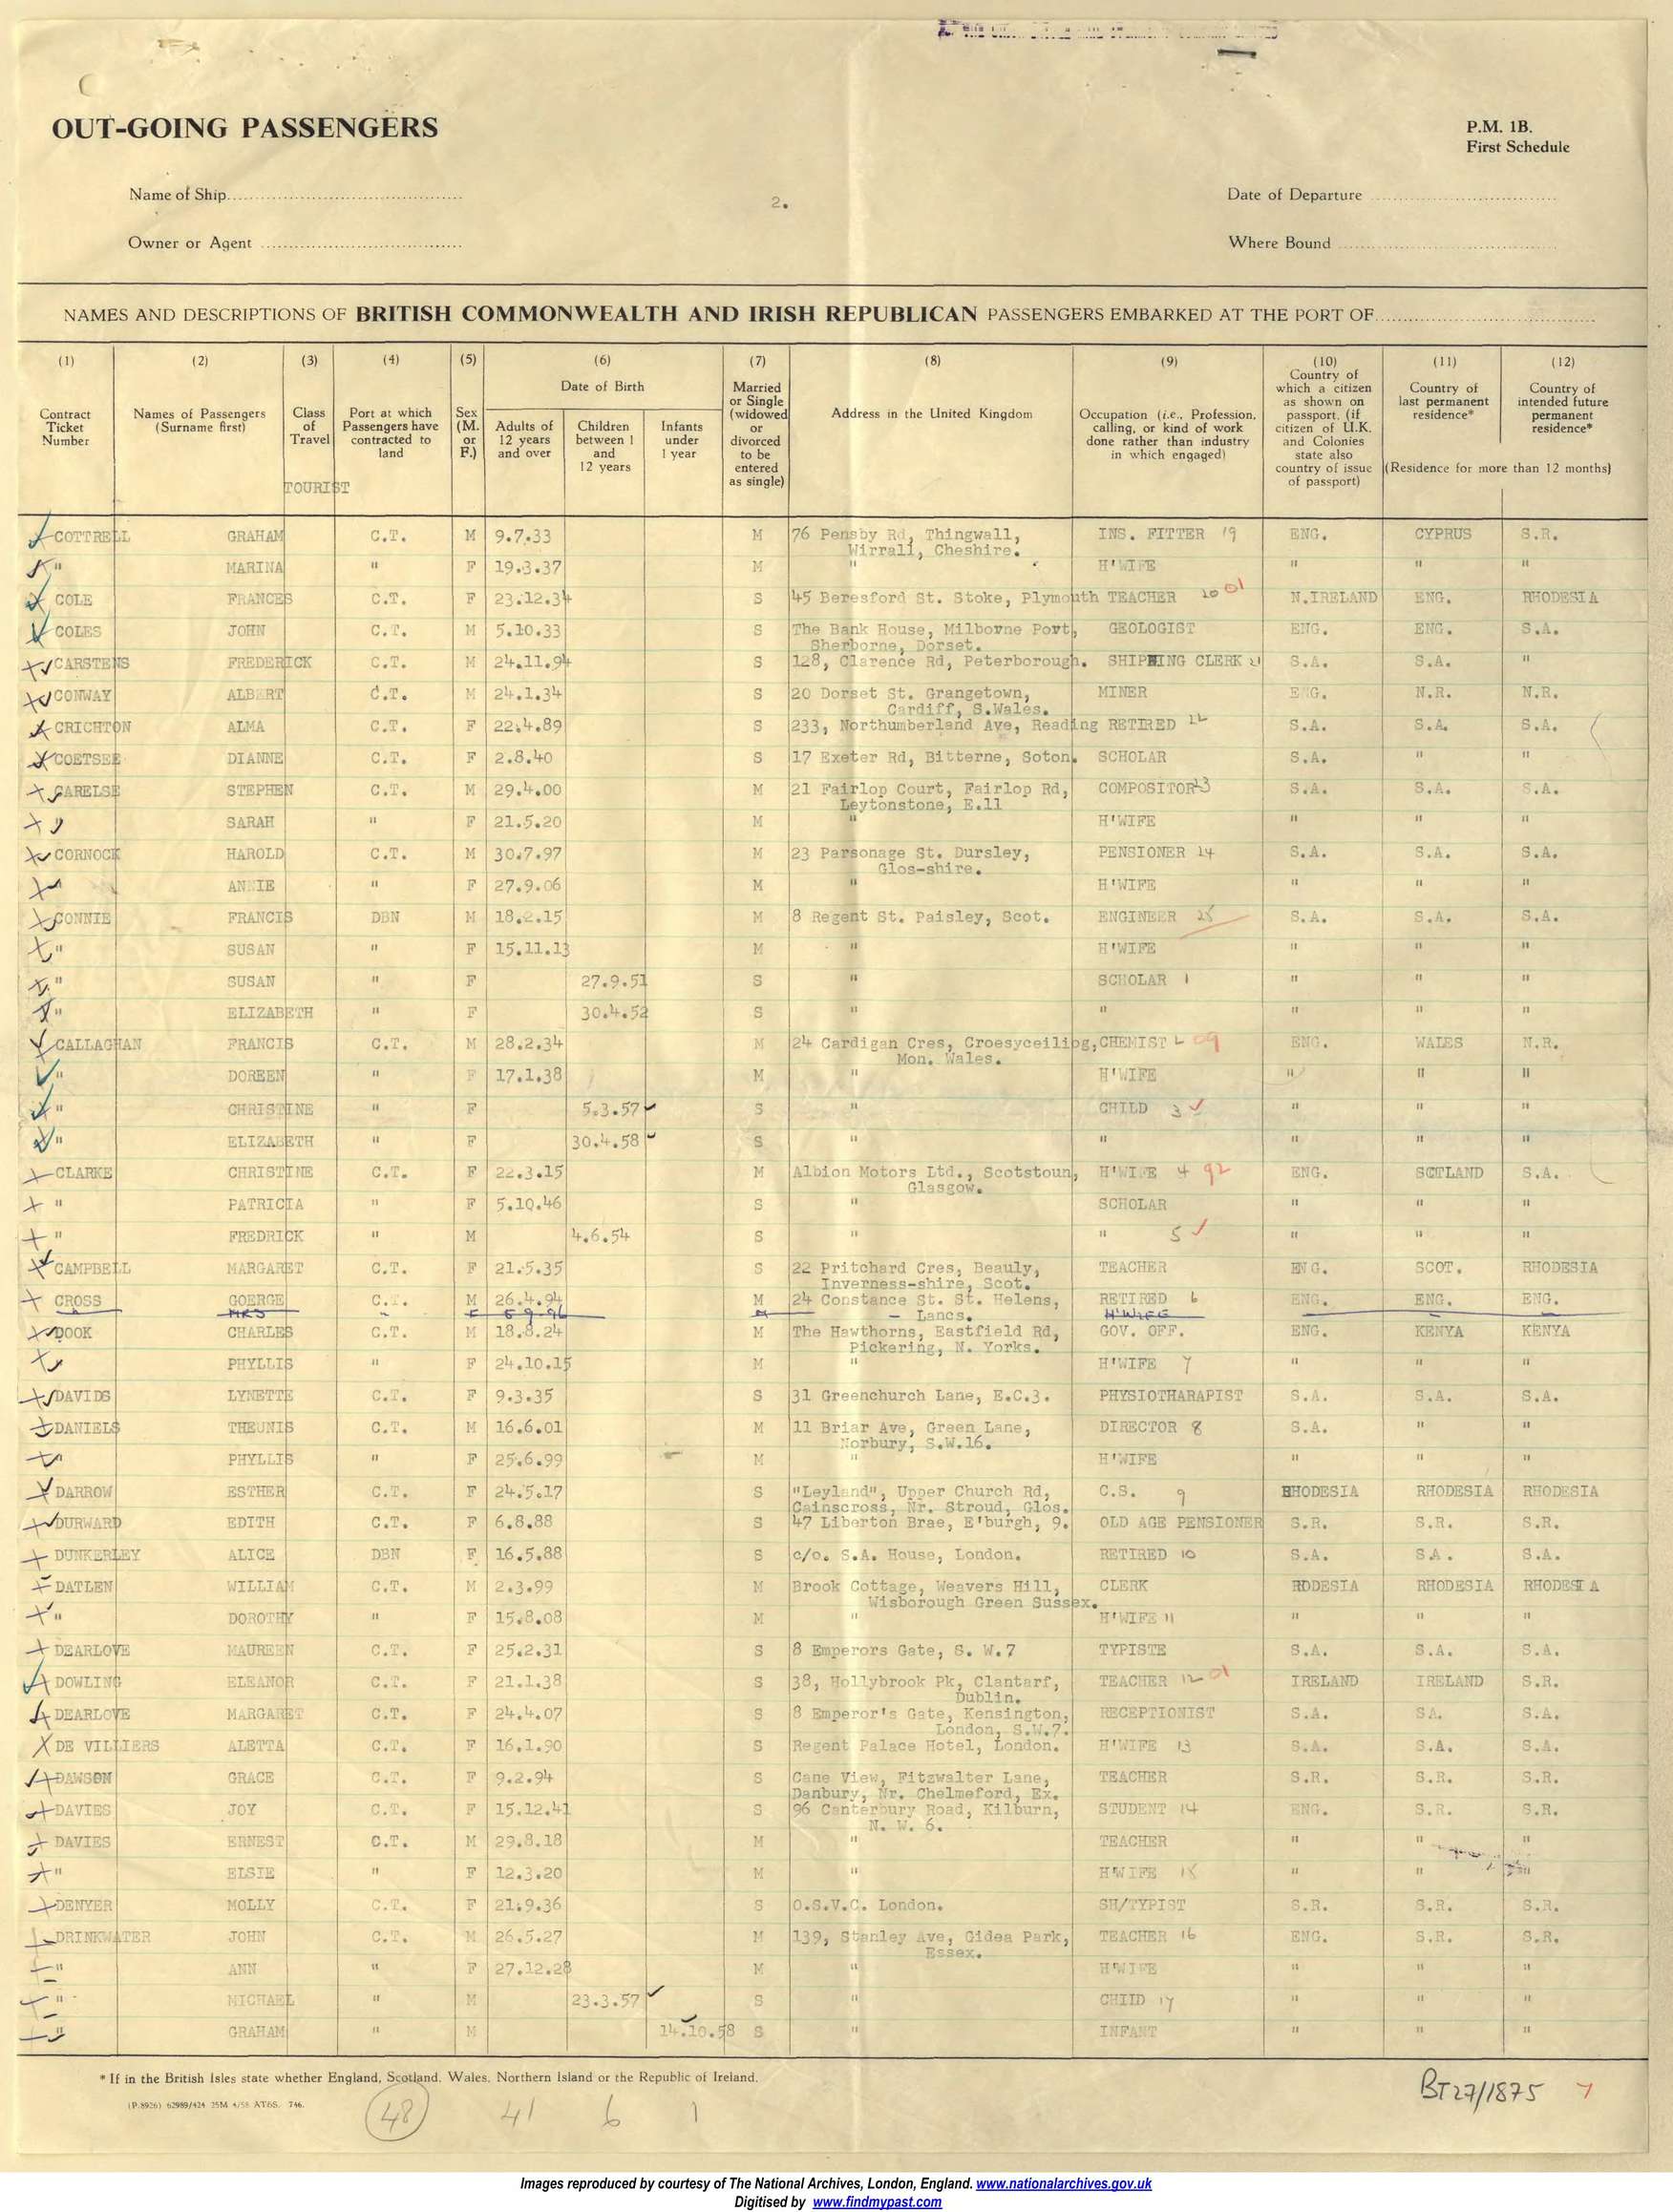 OUT-GOING PASSENGERS
P.M. 1B.
First Schedule
Name of Ship
2.
Date of Departure
Owner or Agent
Where Bound
NAMES AND DESCRIPTIONS OF BRITISH COMMONWEALTH AND IRISH REPUBLICAN PASSENGERS EMBARKED AT THE PORT OF
(1) (2) (3) (4) (5) (6) (7) (8) (9) (10) (11) (12)
Contract Ticket Number
Names of Passengers (Surname first)
Class of Travel
TOURIST
Port at which Passengers have contracted to land
Sex (M. or F.)
Date of Birth
Adults of 12 years and over
Children between 1 and 12 years
Infants under 1 year
Married or Single (widowed or divorced to be entered as single)
Address in the United Kingdom
Occupation (i.e., Profession, calling, or kind of work done rather than industry in which engaged)
Country of which a citizen as shown on passport. (if citizen of U.K. and Colonies state also country of issue of passport)
Country of last permanent residence*
Country of intended future permanent residence*
(Residence for more than 12 months)
COTTRELL GRAHAM C.T. M 9.7.33 M 76 Pensby Rd, Thingwall, INS. FITTER 19 ENG. CYPRUS S.R.
Wirrall, Cheshire.
" MARINA " F 19.3.37 M " H'WIFE " " "
COLE FRANCES C.T. F 23.12.34 S 45 Beresford St. Stoke, Plymouth TEACHER 20 01 N.IRELAND ENG. RHODESIA
COLES JOHN C.T. M 5.10.33 S The Bank House, Milborne Port, GEOLOGIST ENG. ENG. S.A.
Sherborne, Dorset.
CARSTENS FREDERICK C.T. M 24.11.94 S 128, Clarence Rd, Peterborough. SHIPPING CLERK 21 S.A. S.A. "
CONWAY ALBERT C.T. M 24.1.34 S 20 Dorset St. Grangetown, MINER ENG. N.R. N.R.
Cardiff, S.Wales.
CRICHTON ALMA C.T. F 22.4.89 S 233, Northumberland Ave, Reading RETIRED 22 S.A. S.A. S.A.
COETSEE DIANNE C.T. F 2.8.40 S 17 Exeter Rd, Bitterne, Soton. SCHOLAR S.A. " "
CARELSE STEPHEN C.T. M 29.4.00 M 21 Fairlop Court, Fairlop Rd, COMPOSITOR 23 S.A. S.A. S.A.
Leytonstone, E.11
SARAH " F 21.5.20 M " H'WIFE " " "
CORNOCK HAROLD C.T. M 30.7.97 M 23 Parsonage St. Dursley, PENSIONER 24 S.A. S.A. S.A.
Glos-shire.
ANNIE " F 27.9.06 M " H'WIFE " " "
CONNIE FRANCIS DBN M 18.2.15 M 8 Regent St. Paisley, Scot. ENGINEER 25 S.A. S.A. S.A.
" SUSAN " F 15.11.13 M " H'WIFE " " "
" SUSAN " F 27.9.51 S " SCHOLAR 1 " " "
" ELIZABETH " F 30.4.52 S " " " " "
CALLAGHAN FRANCIS C.T. M 28.2.34 M 24 Cardigan Cres, Croesyceiliog, CHEMIST 2 09 ENG. WALES N.R.
Mon. Wales.
" DOREEN " F 17.1.38 M " H'WIFE " " "
" CHRISTINE " F 5.3.57 S " CHILD 3 " " "
" ELIZABETH " F 30.4.58 S " " " " "
CLARKE CHRISTINE C.T. F 22.3.15 M Albion Motors Ltd., Scotstoun, H'WIFE 4 92 ENG. SCTLAND S.A.
Glasgow.
" PATRICIA " F 5.10.46 S " SCHOLAR " " "
" FREDRICK " M 4.6.54 S " " 5 " " "
CAMPBELL MARGARET C.T. F 21.5.35 S 22 Pritchard Cres, Beauly, TEACHER ENG. SCOT. RHODESIA
Inverness-shire, Scot.
CROSS GOERGE C.T. M 26.4.94 M 24 Constance St. St. Helens, RETIRED 6 ENG. ENG. ENG.
MRS " F 5 9 96 M - Lancs. H'WIFE
DOOK CHARLES C.T. M 18.8.24 M The Hawthorns, Eastfield Rd, GOV. OFF. ENG. KENYA KENYA
Pickering, N. Yorks.
PHYLLIS " F 24.10.15 M " H'WIFE 7 " " "
DAVIDS LYNETTE C.T. F 9.3.35 S 31 Greenchurch Lane, E.C.3. PHYSIOTHARAPIST S.A. S.A. S.A.
DANIELS THEUNIS C.T. M 16.6.01 M 11 Briar Ave, Green Lane, DIRECTOR 8 S.A. " "
Norbury, S.W.16.
PHYLLIS " F 25.6.99 M " H'WIFE " " "
DARROW ESTHER C.T. F 24.5.17 S "Leyland", Upper Church Rd, C.S. 9 RHODESIA RHODESIA RHODESIA
Cainscross, Nr. Stroud, Glos.
DURWARD EDITH C.T. F 6.8.88 S 47 Liberton Brae, E'burgh, 9. OLD AGE PENSIONER S.R. S.R. S.R.
DUNKERLEY ALICE DBN F 16.5.88 S c/o. S.A. House, London. RETIRED 10 S.A. S.A. S.A.
DATLEN WILLIAM C.T. M 2.3.99 M Brook Cottage, Weavers Hill, CLERK RDDESIA RHODESIA RHODESIA
Wisborough Green Sussex.
" DOROTHY " F 15.8.08 M " H'WIFE 11 " " "
DEARLOVE MAUREEN C.T. F 25.2.31 S 8 Emperors Gate, S. W.7 TYPISTE S.A. S.A. S.A.
DOWLING ELEANOR C.T. F 21.1.38 S 38, Hollybrook Pk, Clantarf, TEACHER 12 01 IRELAND IRELAND S.R.
Dublin.
DEARLOVE MARGARET C.T. F 24.4.07 S 8 Emperor's Gate, Kensington, RECEPTIONIST S.A. SA. S.A.
London, S.W.7.
DE VILLIERS ALETTA C.T. F 16.1.90 S Regent Palace Hotel, London. H'WIFE 13 S.A. S.A. S.A.
DAWSON GRACE C.T. F 9.2.94 S Cane View, Fitzwalter Lane, TEACHER S.R. S.R. S.R.
Danbury, Nr. Chelmeford, Ex.
DAVIES JOY C.T. F 15.12.41 S 96 Canterbury Road, Kilburn, STUDENT 14 ENG. S.R. S.R.
N. W. 6.
DAVIES ERNEST C.T. M 29.8.18 M " TEACHER " " "
" ELSIE " F 12.3.20 M " H'WIFE 15 " " "
DENYER MOLLY C.T. F 21.9.36 S O.S.V.C. London. SH/TYPIST S.R. S.R. S.R.
DRINKWATER JOHN C.T. M 26.5.27 M 139, Stanley Ave, Gidea Park, TEACHER 16 ENG. S.R. S.R.
Essex.
" ANN " F 27.12.28 M " H'WIFE " " "
" MICHAEL " M 23.3.57 S " CHIID 17 " " "
" GRAHAM " M 14.10.58 S " INFANT " " "
* If in the British Isles state whether England, Scotland, Wales, Northern Island or the Republic of Ireland.
(P.8926) 62989/424 25M 4/58 AT&S. 746.
48 41 6 1
BT27/1875 7
Images reproduced by courtesy of The National Archives, London, England. www.nationalarchives.gov.uk
Digitised by www.findmypast.com